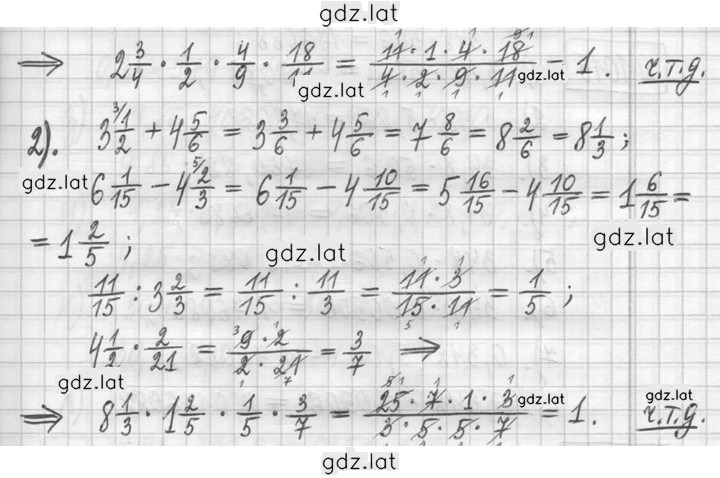 gdz.lat
⟹ 2 3/4 · 1/2 · 4/9 · 18/11 = (11 · 1 · 4 · 18)/(4 · 2 · 9 · 11) = 1. ч.т.д.
gdz.lat gdz.lat
2). 3 1/2 + 4 5/6 = 3 3/6 + 4 5/6 = 7 8/6 = 8 2/6 = 8 1/3 ;
gdz.lat
6 1/15 − 4 2/3 = 6 1/15 − 4 10/15 = 5 16/15 − 4 10/15 = 1 6/15 =
gdz.lat
= 1 2/5 ;
gdz.lat
11/15 : 3 2/3 = 11/15 : 11/3 = (11 · 3)/(15 · 11) = 1/5 ;
4 1/2 · 2/21 = (9 · 2)/(2 · 21) = 3/7 ⟹
gdz.lat
⟹ 8 1/3 · 1 2/5 · 1/5 · 3/7 = (25 · 7 · 1 · 3)/(3 · 5 · 5 · 7) = 1. ч.т.д.
gdz.lat gdz.lat
gdz.lat